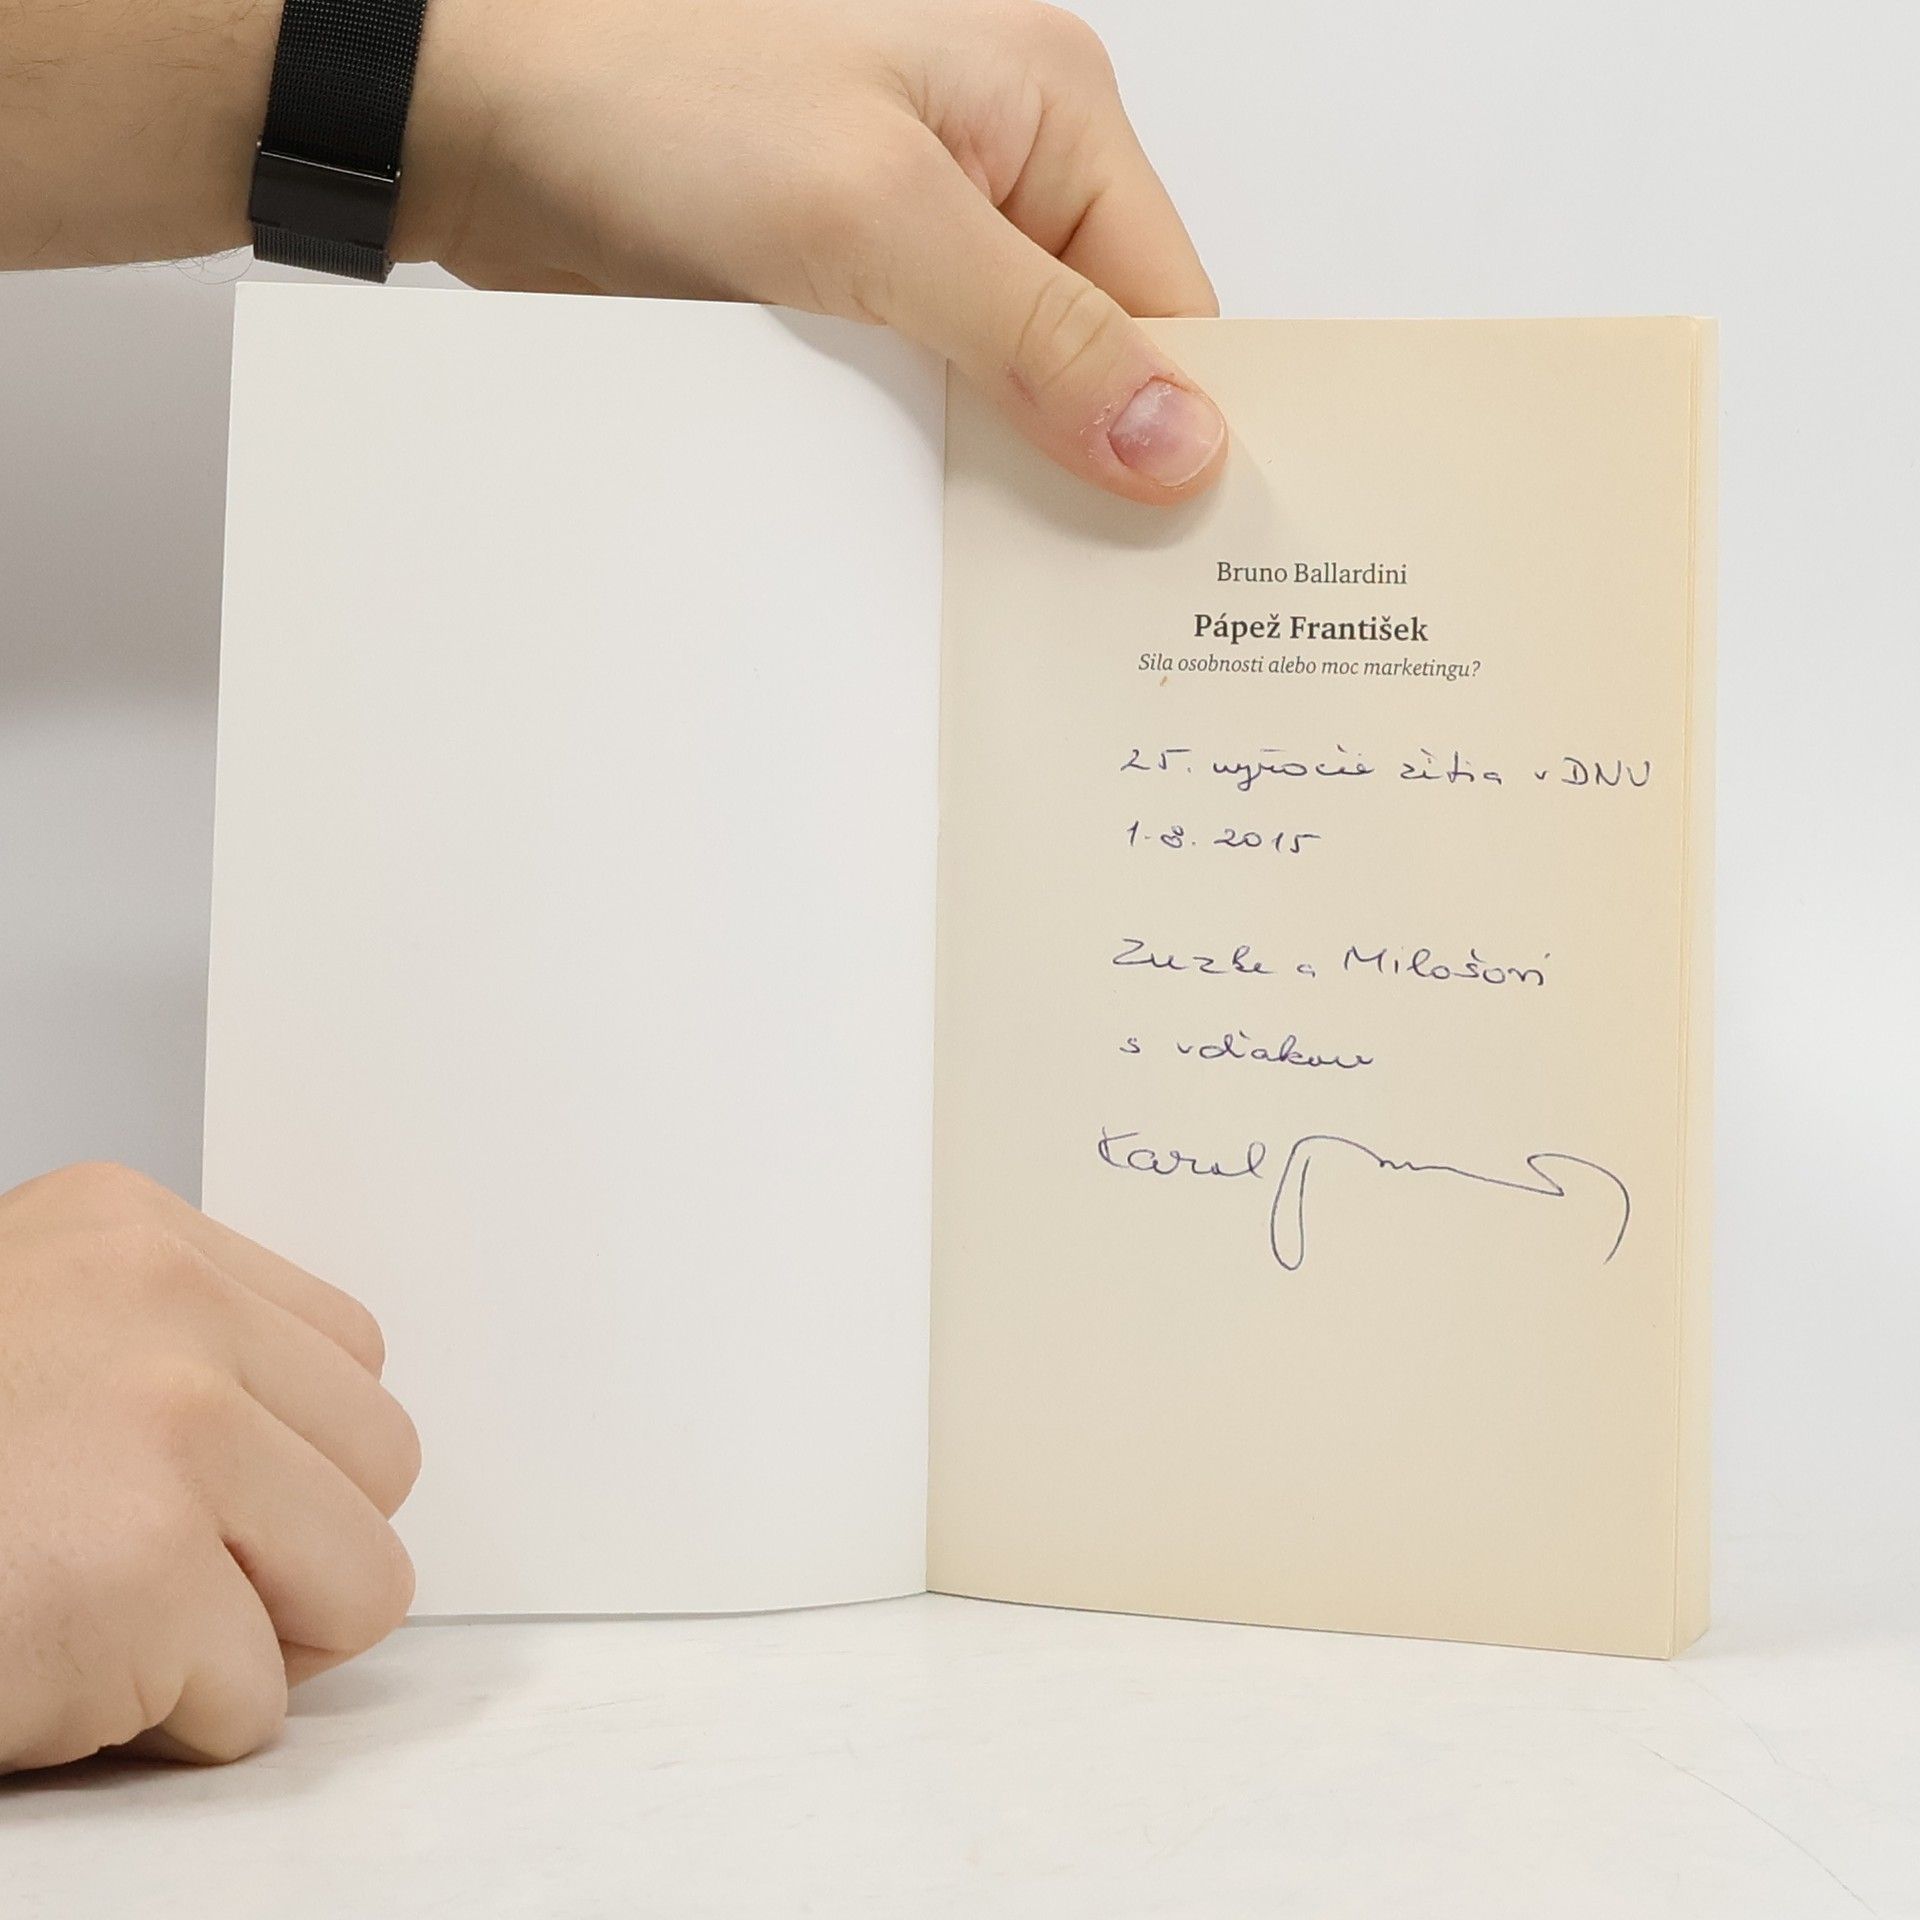 Bruno Ballardini
Pápež František
Sila osobnosti alebo moc marketingu?
25. výročie žitia v DNV
1.8. 2015
Zuzke a Milošovi
s vďakou
Karol